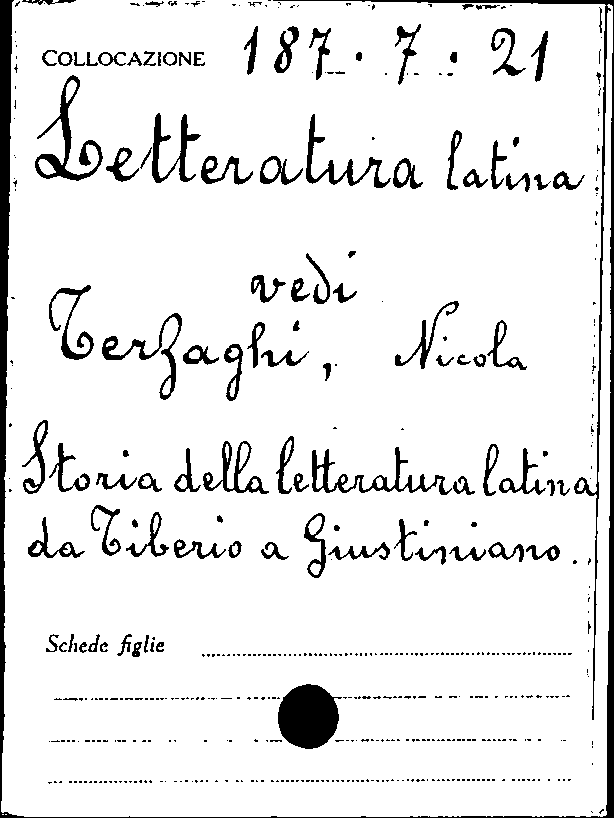 COLLOCAZIONE 187 . 7 . 21
Letteratura latina
vedi
Terzaghi, Nicola
Storia della letteratura latina
da Tiberio a Giustiniano..
Schede figlie